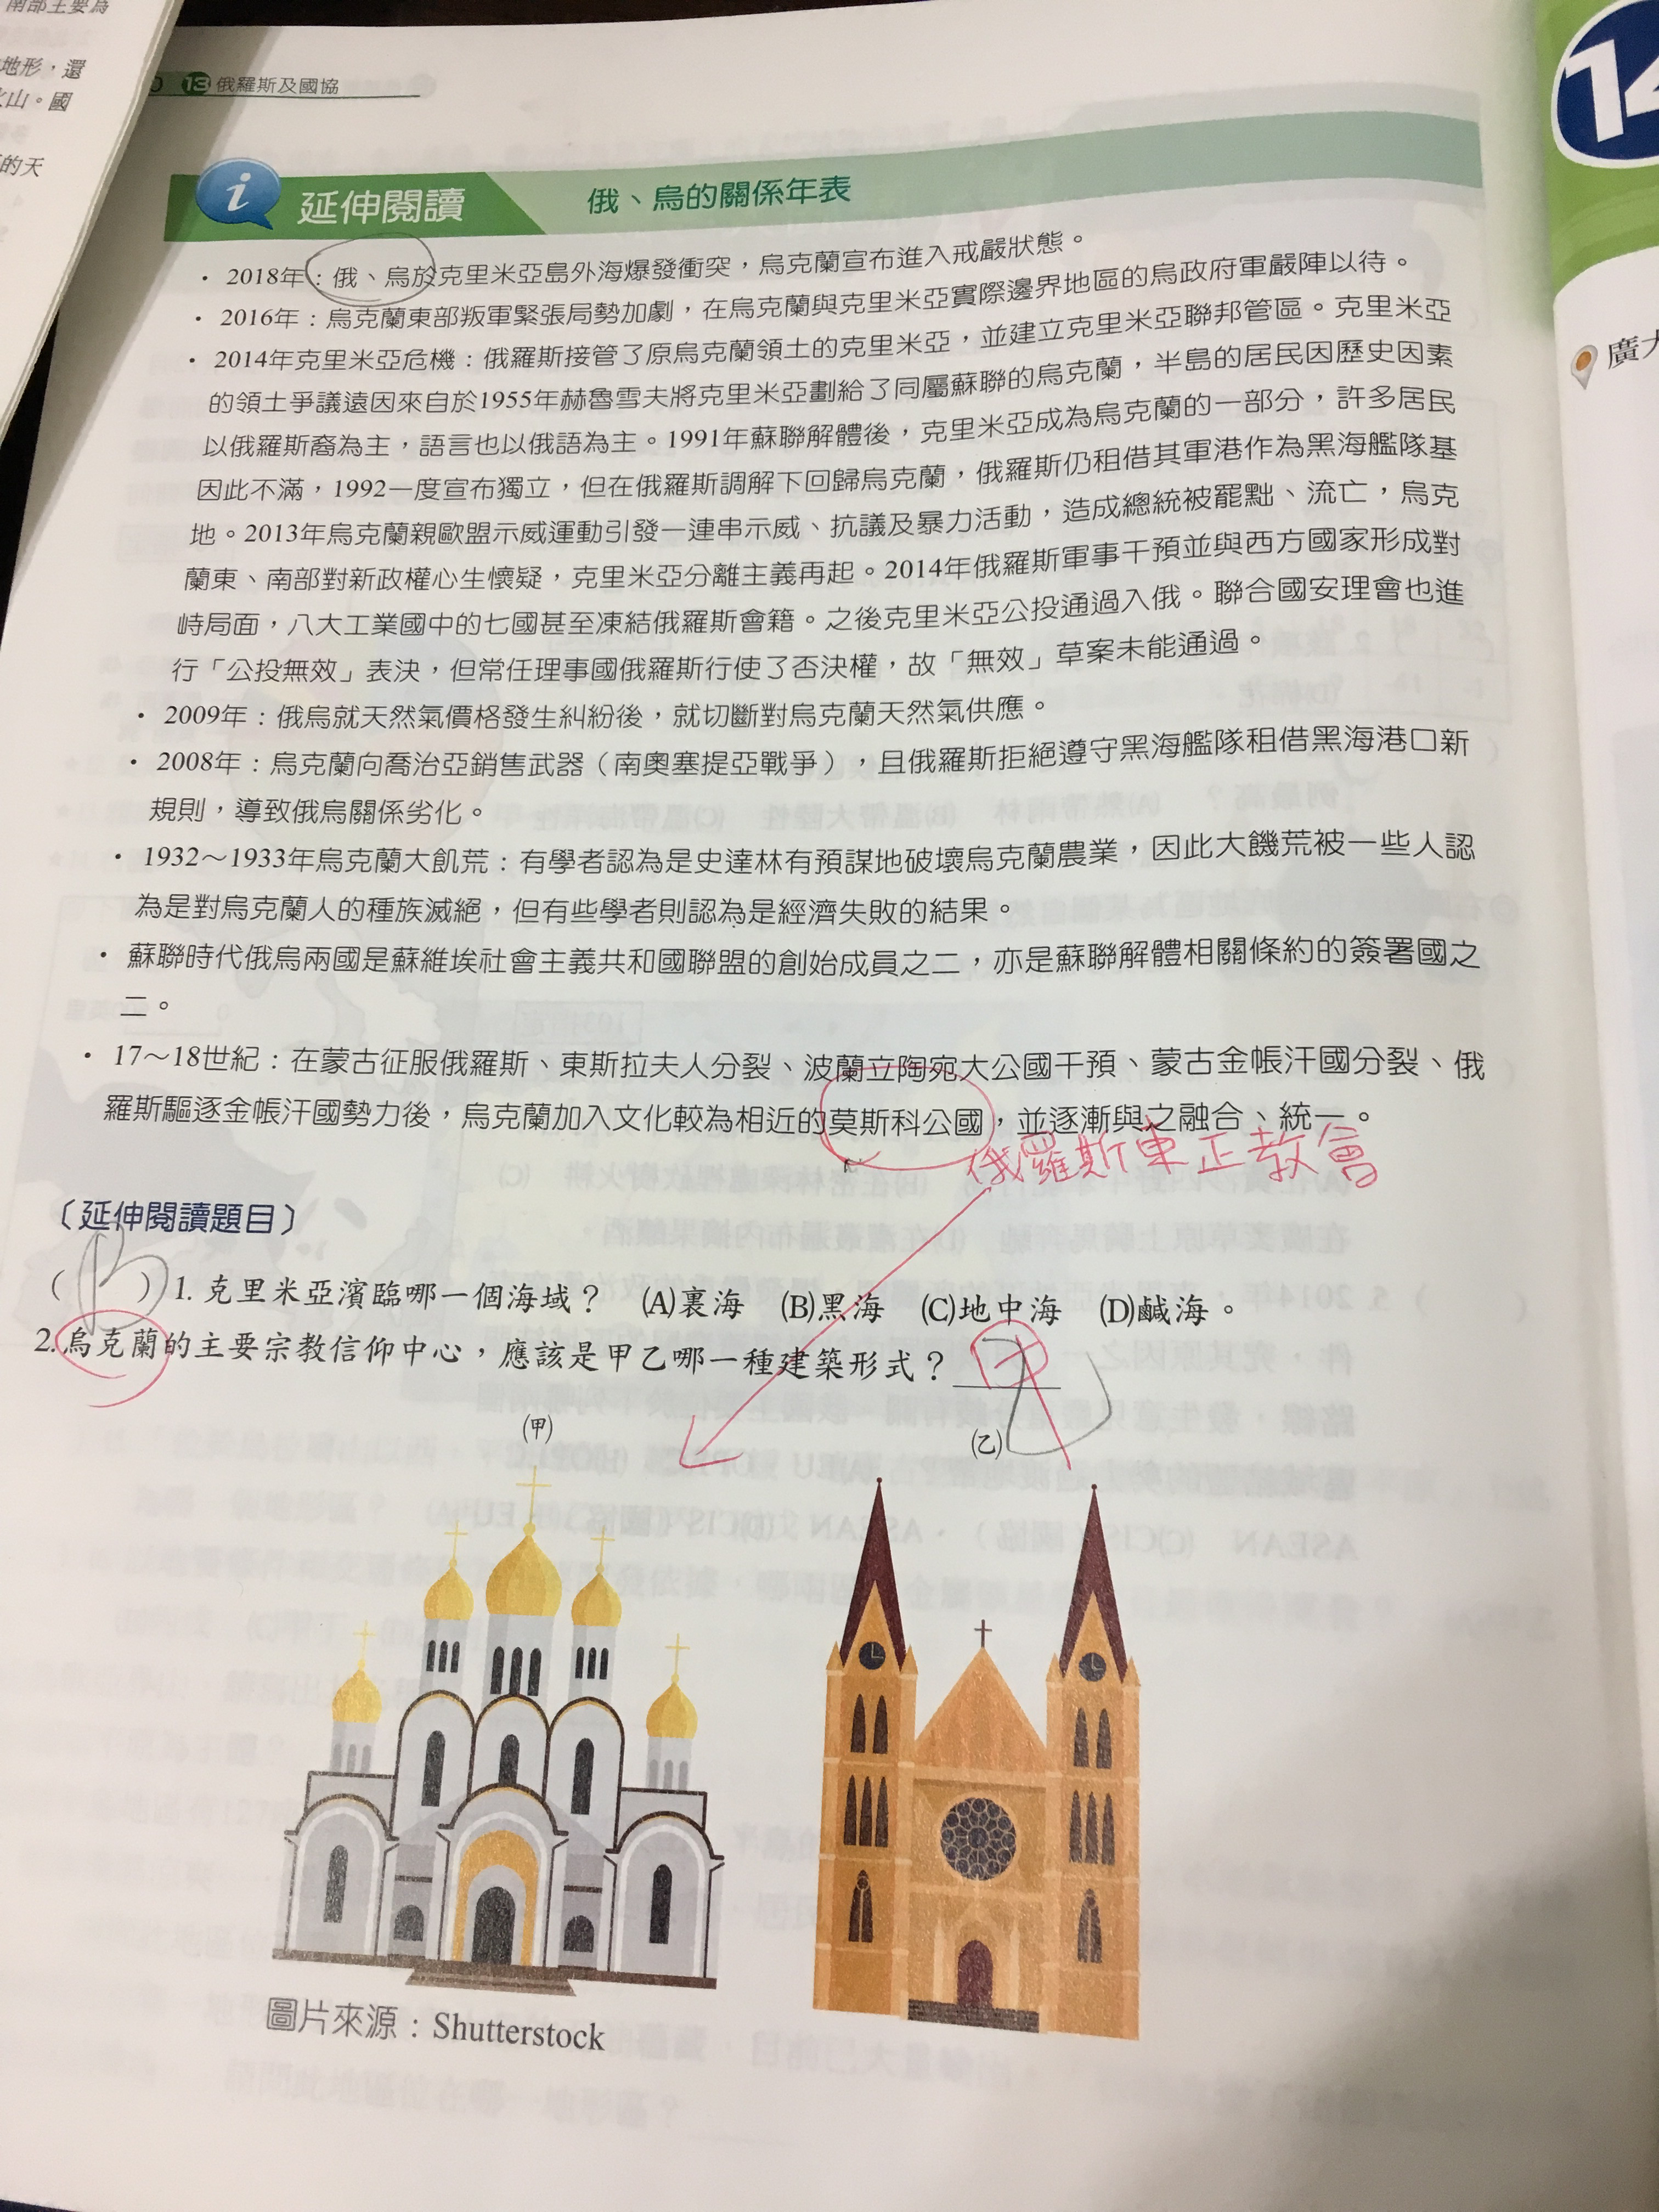 南部主要為
地形，還
火山。國
的天
13 俄羅斯及國協
14
廣大
i 延伸閱讀 俄、烏的關係年表
• 2018年：俄、烏於克里米亞島外海爆發衝突，烏克蘭宣布進入戒嚴狀態。
• 2016年：烏克蘭東部叛軍緊張局勢加劇，在烏克蘭與克里米亞實際邊界地區的烏政府軍嚴陣以待。
• 2014年克里米亞危機：俄羅斯接管了原烏克蘭領土的克里米亞，並建立克里米亞聯邦管區。克里米亞
的領土爭議遠因來自於1955年赫魯雪夫將克里米亞劃給了同屬蘇聯的烏克蘭，半島的居民因歷史因素
以俄羅斯裔為主，語言也以俄語為主。1991年蘇聯解體後，克里米亞成為烏克蘭的一部分，許多居民
因此不滿，1992一度宣布獨立，但在俄羅斯調解下回歸烏克蘭，俄羅斯仍租借其軍港作為黑海艦隊基
地。2013年烏克蘭親歐盟示威運動引發一連串示威、抗議及暴力活動，造成總統被罷黜、流亡，烏克
蘭東、南部對新政權心生懷疑，克里米亞分離主義再起。2014年俄羅斯軍事干預並與西方國家形成對
峙局面，八大工業國中的七國甚至凍結俄羅斯會籍。之後克里米亞公投通過入俄。聯合國安理會也進
行「公投無效」表決，但常任理事國俄羅斯行使了否決權，故「無效」草案未能通過。
• 2009年：俄烏就天然氣價格發生糾紛後，就切斷對烏克蘭天然氣供應。
• 2008年：烏克蘭向喬治亞銷售武器（南奧塞提亞戰爭），且俄羅斯拒絕遵守黑海艦隊租借黑海港口新
規則，導致俄烏關係劣化。
• 1932～1933年烏克蘭大飢荒：有學者認為是史達林有預謀地破壞烏克蘭農業，因此大饑荒被一些人認
為是對烏克蘭人的種族滅絕，但有些學者則認為是經濟失敗的結果。
• 蘇聯時代俄烏兩國是蘇維埃社會主義共和國聯盟的創始成員之二，亦是蘇聯解體相關條約的簽署國之
二。
• 17～18世紀：在蒙古征服俄羅斯、東斯拉夫人分裂、波蘭立陶宛大公國干預、蒙古金帳汗國分裂、俄
羅斯驅逐金帳汗國勢力後，烏克蘭加入文化較為相近的莫斯科公國，並逐漸與之融合、統一。
俄羅斯東正教會
〔延伸閱讀題目〕
（B）1. 克里米亞濱臨哪一個海域？ (A)裏海 (B)黑海 (C)地中海 (D)鹹海。
2.烏克蘭的主要宗教信仰中心，應該是甲乙哪一種建築形式？ 甲
(甲)
(乙)
圖片來源：Shutterstock